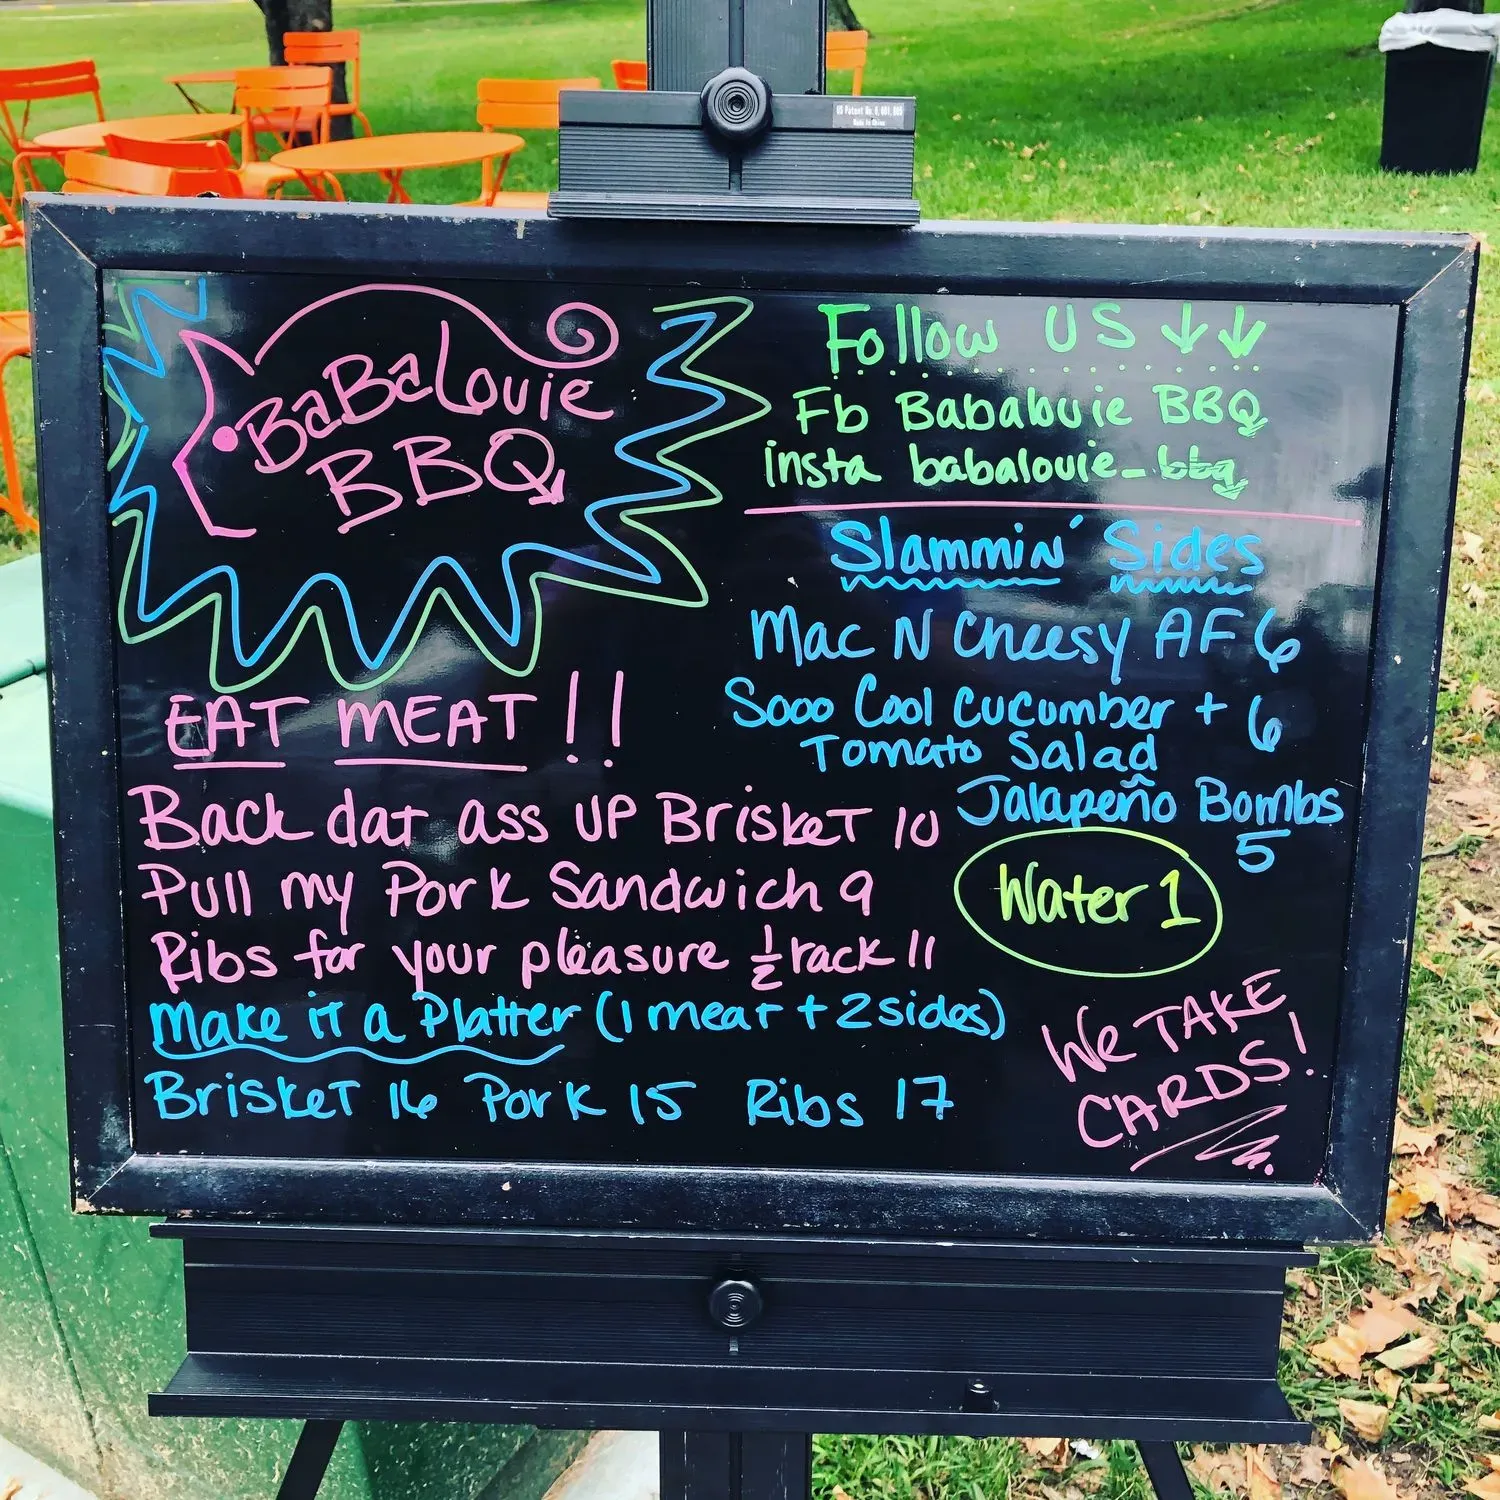 US Patent No. 6,601,805
Made In China
BaBaLouie
BBQ
EAT MEAT!!
Back dat ass UP Brisket 10
Pull my Pork Sandwich 9
Ribs for your pleasure ½ rack 11
Make it a Platter (1 meat + 2 sides)
Brisket 16 Pork 15 Ribs 17
Follow US ↓↓
Fb Babalouie BBQ
insta babalouie_bbq
Slammin' Sides
Mac N Cheesy AF 6
Sooo Cool Cucumber + 6
Tomato Salad
Jalapeño Bombs
5
Water 1
We TAKE
CARDS!